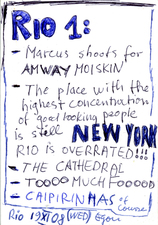 RIO 1:
- Marcus shoots for
AMWAY MOISKIN
- The place with the
highest concentration
of good looking people
is still NEW YORK
RIO IS OVERRATED!!!
- THE CATHEDRAL
- TOOOO MUCH FOOOOD
- CAIPIRINHAS of
course
Rio 19XI08 (WED) Egon